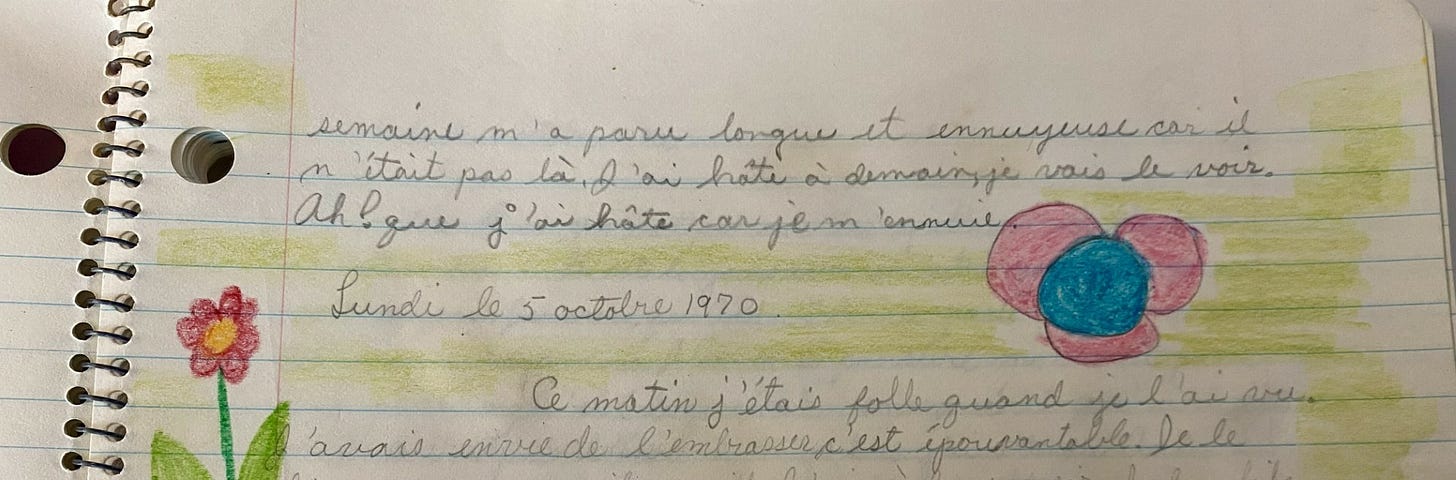 semaine m'a paru longue et ennuyeuse car il
n'était pas là. J'ai hâte à demain, je vais le voir.
Ah! que j'ai hâte car je m'ennuie.
Lundi le 5 octobre 1970.
Ce matin j'étais folle quand je l'ai vu.
J'avais envie de l'embrasser, c'est épouvantable. Je le